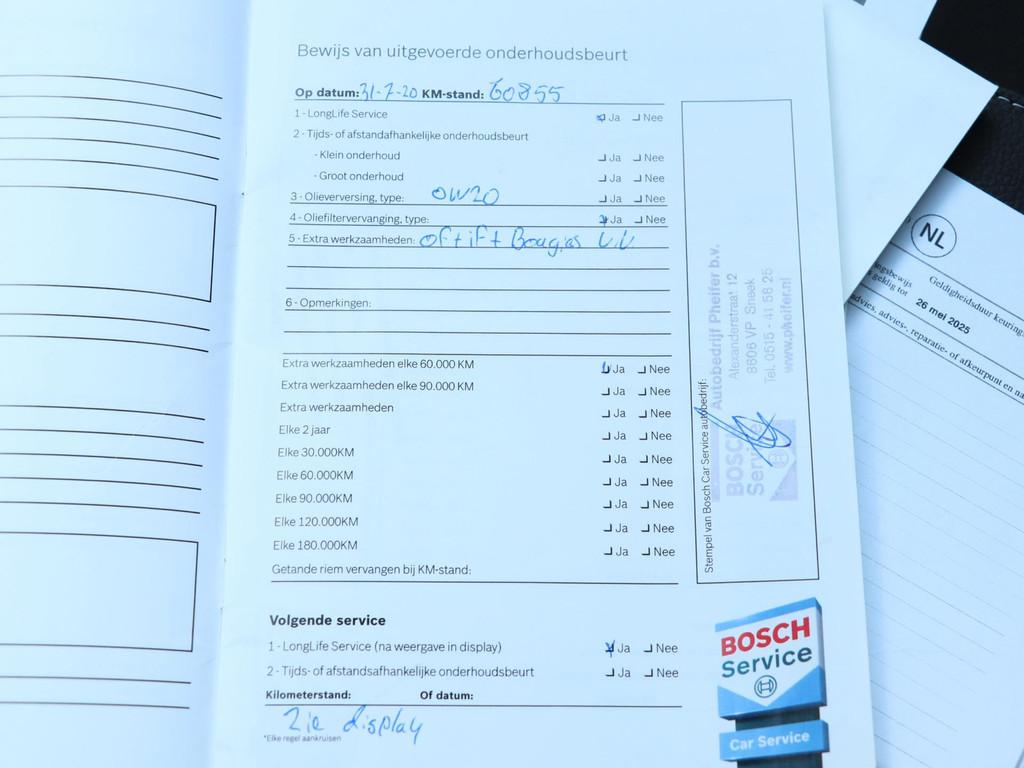 Bewijs van uitgevoerde onderhoudsbeurt
Op datum: 31-7-20 KM-stand: 60855
1 - LongLife Service Ja Nee
2 - Tijds- of afstandafhankelijke onderhoudsbeurt
- Klein onderhoud Ja Nee
- Groot onderhoud Ja Nee
3 - Olieverversing, type: 0W20 Ja Nee
4 - Oliefiltervervanging, type: Ja Nee
5 - Extra werkzaamheden: Of + if + Bougies V.V.
6 - Opmerkingen:
Extra werkzaamheden elke 60.000 KM Ja Nee
Extra werkzaamheden elke 90.000 KM Ja Nee
Extra werkzaamheden Ja Nee
Elke 2 jaar Ja Nee
Elke 30.000KM Ja Nee
Elke 60.000KM Ja Nee
Elke 90.000KM Ja Nee
Elke 120.000KM Ja Nee
Elke 180.000KM Ja Nee
Getande riem vervangen bij KM-stand:
Stempel van Bosch Car Service autobedrijf:
Autobedrijf Pheifer b.v.
Alexanderstraat 12
8606 VP Sneek
Tel. 0515 - 41 58 25
www.pheifer.nl
BOSCH
Service
Volgende service
1 - LongLife Service (na weergave in display) Ja Nee
2 - Tijds- of afstandsafhankelijke onderhoudsbeurt Ja Nee
Kilometerstand: Of datum:
Zie display
*Elke regel aankruisen
BOSCH
Service
Car Service
NL
Geldigheidsduur keuring
ngsbewijs
geldig tot 26 mei 2025
advies, advies-, reparatie- of afkeurpunt en na